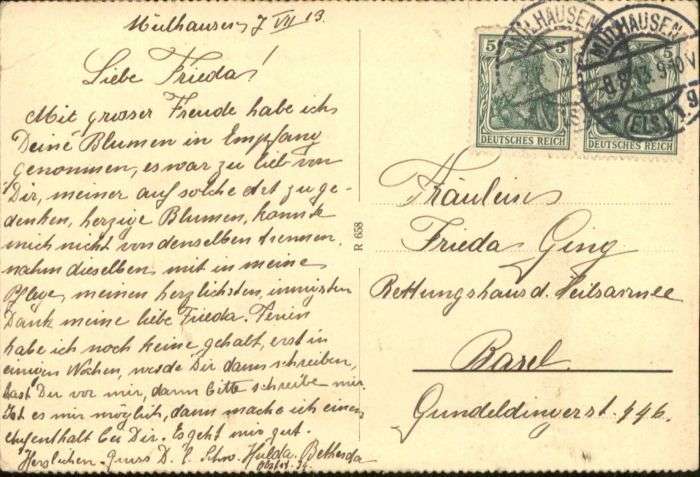 Mülhausen, 7 VII 13.
Liebe Frieda!
Mit grosser Freude habe ich
Deine Blumen in Empfang
genommen, es war zu lieb von
Dir, meiner auf solche Art zu ge-
denken, herzige Blumen, konnte
mich nicht von denselben trennen.
nahm dieselben mit in meine
Pflege, meinen herzlichsten, innigsten
Dank meine liebe Frieda. Ferien
habe ich noch keine gehabt, erst in
einigen Wochen, werde Dir dann schreiben,
hast Dir vor mir, dann bitte schreibe mir.
Ist es mir möglich, dann mache ich einen
Aufenthalt bei Dir. Es geht mir gut.
Herzlichen Gruss D. l. Schw. Hulda. Bethesda
R 658
5 5
DEUTSCHES REICH
5
DEUTSCHES REICH
MÜLHAUSEN
MÜLHAUSEN
-8.8.13. 9-10V.
(ELS) 1.g
Fräulein
Frieda Ging
Rettungshaus d. Heilsarmee
Basel.
Gundeldingerst. 446.